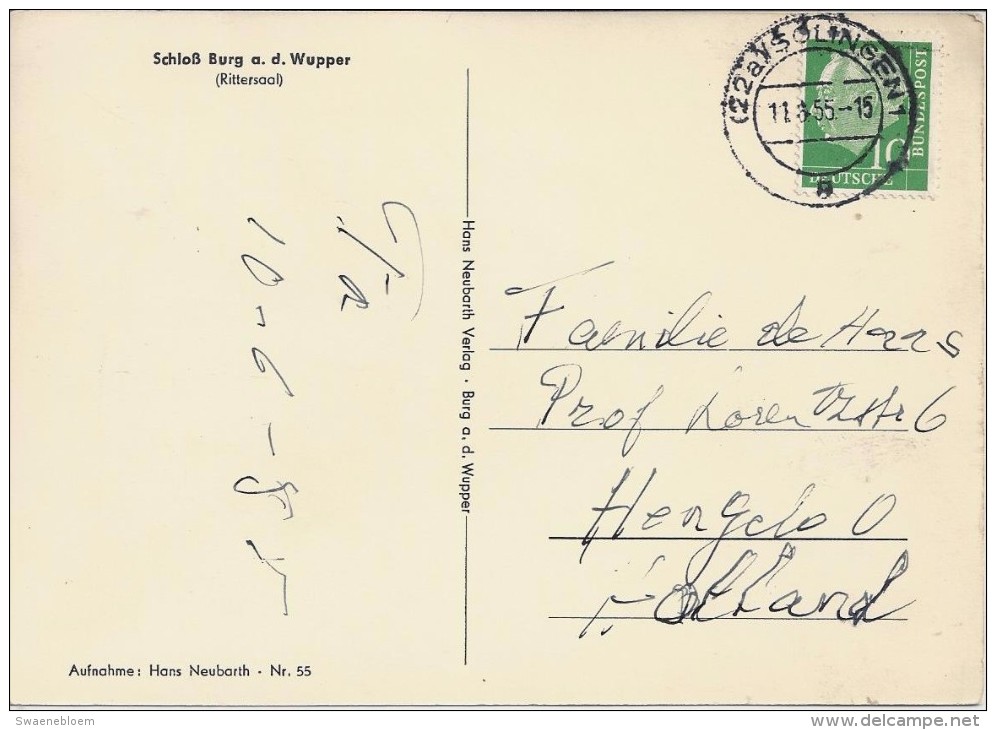 Schloß Burg a. d. Wupper
(Rittersaal)
(22a) SOLINGEN 1
11.6.55.-15
a
10
DEUTSCHE
BUNDESPOST
10-6-55
Hans Neubarth Verlag · Burg a. d. Wupper
Familie de Haas
Prof Lorentzstr 6
Hengelo O
Holland
Aufnahme: Hans Neubarth · Nr. 55
Swaenebloem
delcampe.net